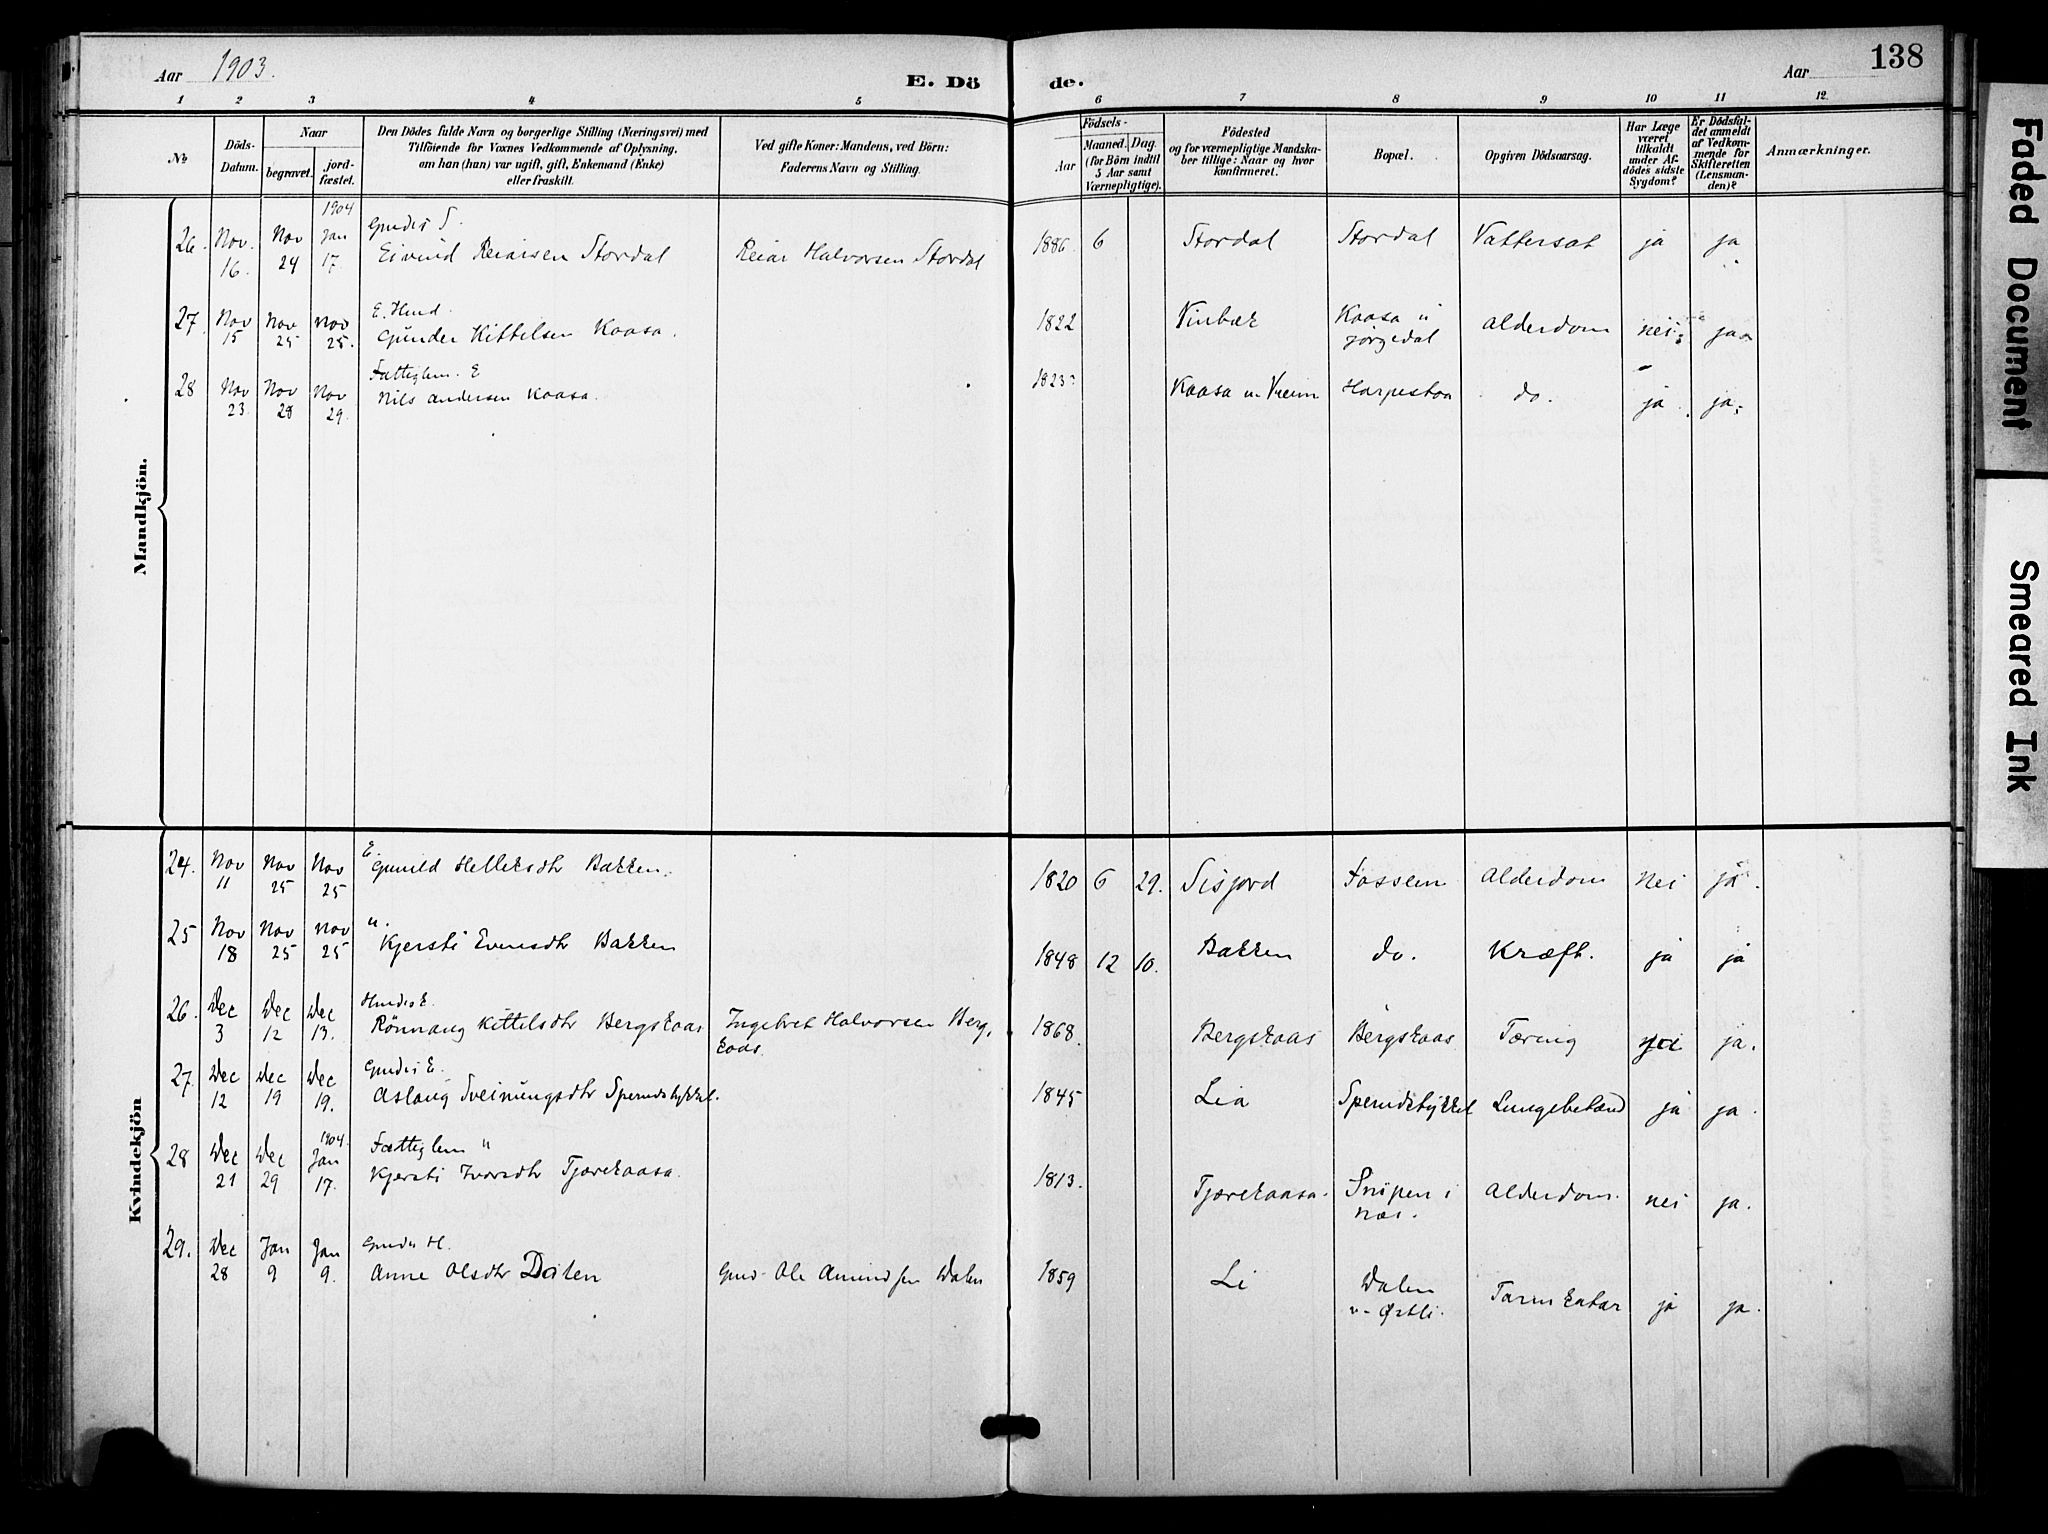 Aar 1903.
E. Döde.
Aar
138
1 2 3 4 5 6 7 8 9 10 11 12.
No
Döds-Datum.
Naar
begravet.
jordfæstet.
Den Dödes fulde Navn og borgerlige Stilling (Næringsvei) med
Tilföiende for Voxnes Vedkommende af Oplysning,
om han (hun) var ugift, gift, Enkemand (Enke)
eller fraskilt.
Ved gifte Koner: Mandens, ved Börn:
Faderens Navn og Stilling.
Födsels-
Aar
Maaned. Dag.
(for Börn indtil
5 Aar samt
Værnepligtige).
Födested
og for værnepligtige Mandska-
ber tillige: Naar og hvor
konfirmeret.
Bopæl.
Opgiven Dödsaarsag.
Har Læge
været
tilkaldt
under Af-
dödes sidste
Sygdom?
Er Dödsfal-
det anmeldt
af Vedkom-
mende for
Skifteretten
(Lensman-
den)?
Anmærkninger.
Mandkjön.
26. Nov. 16. Nov 24 1904 Jan 17. Gmdss S. Eivind Reiarsen Stordal Reiar Halvorsen Stordal 1886 6 Stordal Stordal Vattersot ja ja
27. Nov 15 Nov 25 Nov 25. E. Hmd. Gunder Kittelsen Kaasa. 1822 Vinbæk Kaasa u Jörgedal Alderdom nei ja
28 Nov 23. Nov 28 Nov 29. Fattiglem. E Nils Andersen Kaasa. 1823 Kaasa u. Harpestoa do. ja ja
Kvindekjön
24. Nov 11 Nov 25 Nov 25 E. Gunild Helleksdtr Bakken. 1820 6 29. Sisjord Fossem Alderdom Nei ja.
25 Nov 18 Nov 25 Nov 25 " Kjersti Evensdtr Bakken 1848 12 10. Bakken do. Kræft. ja ja
26. Dec 3 Dec 12 Dec 13. Hmds E. Rönnaug Kittelsdtr Bergskaas Ingebret Halvorsen Bergskaas 1868. Bergskaas Bergskaas Tæring ja.
27. Dec 12 Dec 19 Dec 19. Gmds E. Aslaug Sveinungsdtr Sperudstykket. 1845 Lia Sperudstykket Lungebetænd ja ja.
28 Dec 21 Dec 29 1904. Jan 17. Fattiglem " Kjersti Ivarsdtr Tjærekaasa. 1813. Tjærekaasa. Snipen i Næs. Alderdom. nei ja.
29. Dec 28 Jan 9 Jan 9. Gmds H. Anne Olsdtr Dalen Gmd. Ole Amundsen Dalen 1859 Li Dalen u. Östli. Tarmkatar ja ja.
Faded Document
Smeared Ink